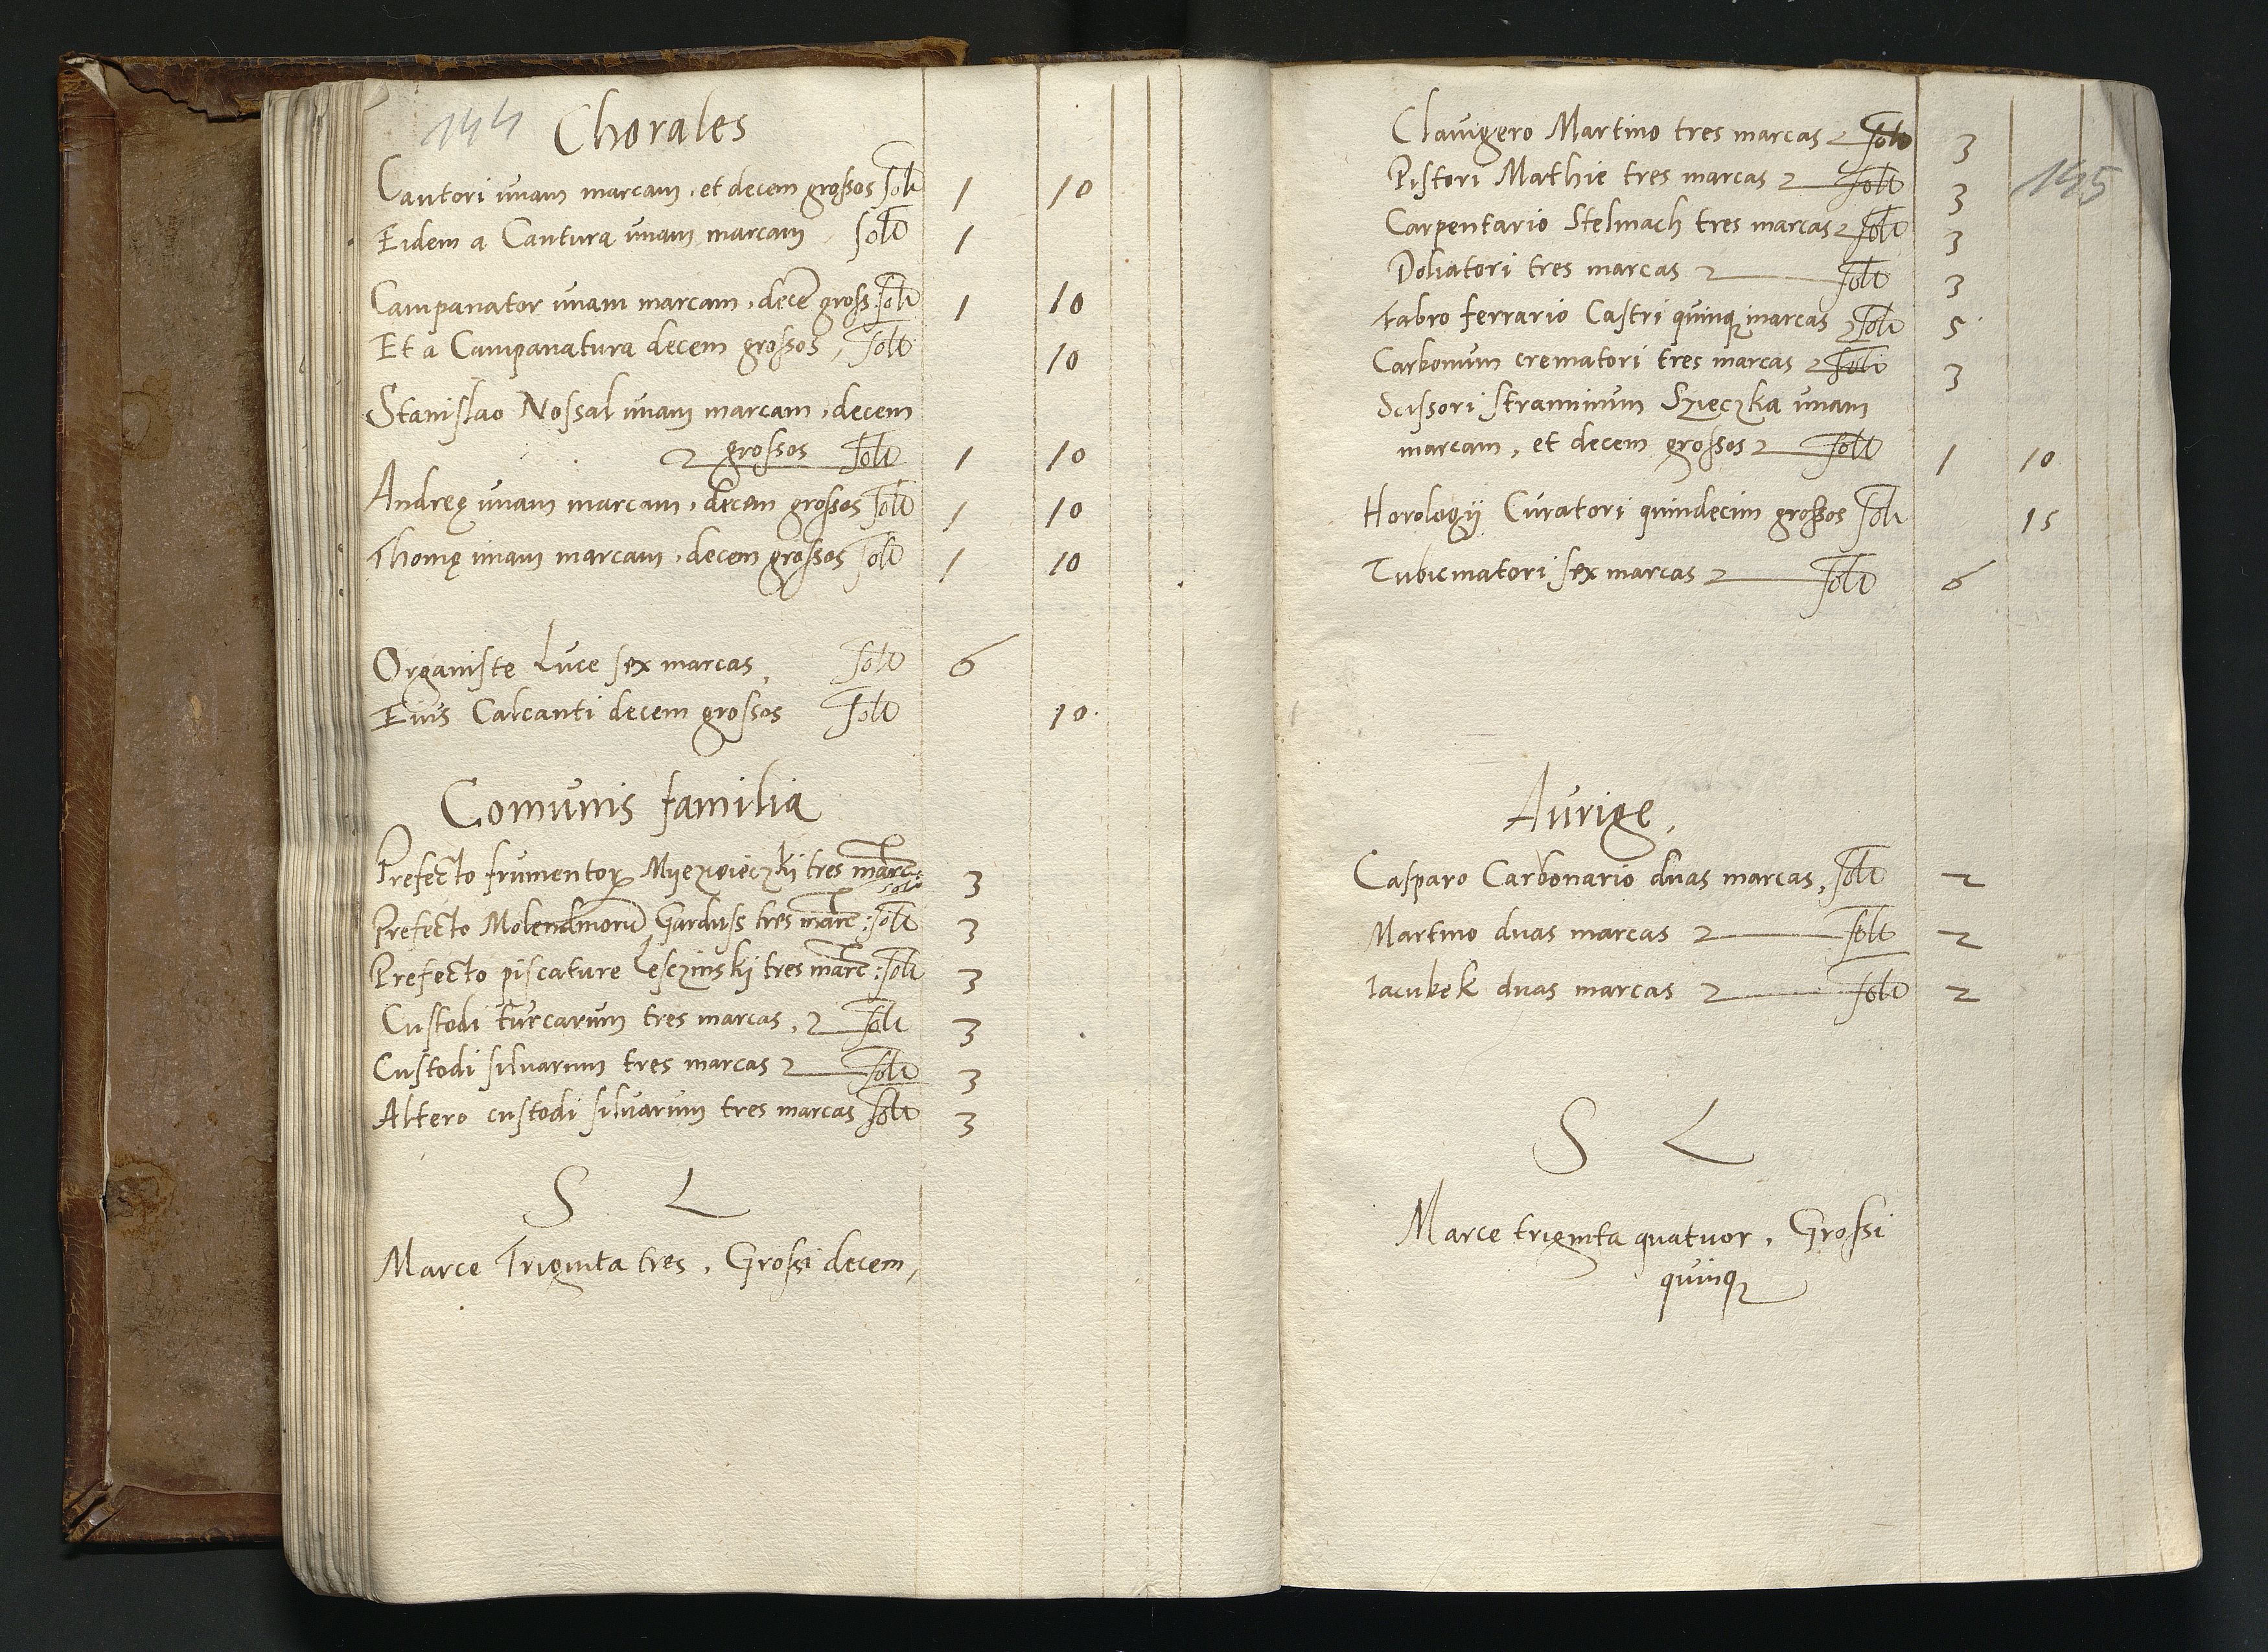 144
Chorales
Cantori unam marcam, et decem grossos solt 1 10
Eidem a Cantura unam marcam, solt 1
Campanator unam marcam, decē gross solt 1 10
Et a Campanatura decem grossos, solt 10
Stanislao Nossal unam marcam, decem
grossos solt 1 10
Andreę unam marcam, decem grossos solt 1 10
Thomę unam marcam, decem grossos solt 1 10
Organiste Luce sex marcas, solt 6
Eius Calcanti decem grossos solt 10
Comunis familia
Prefecto frumentorꝝ tres marc:
solt 3
Prefecto Molendinorū Garduss tres marc: solt 3
Prefecto piscature Lesczinskij tres marc: solt 3
Custodi turcarum tres marcas, solt 3
Custodi siluarum tres marcas solt 3
Altero custodi siluarum tres marcas solt 3
S L
Marce Triginta tres, Grossi decem,
Clauigero Martino tres marcas solt 3
Pistori Mathie tres marcas solt 3
145
Carpentario Stelmach tres marcas solt 3
Doliatori tres marcas solt 3
Fabro ferrario Castri quinqꝫ marcas solt 5
Carbonum crematori tres marcas solt 3
Scissori straminum Szięczka unam
marcam, et decem grossos solt 1 10
Horologij Curatori quindecim grossos solt 15
Tubicinatori sex marcas solt 6
Aurige,
Casparo Carbonario duas marcas, solt 2
Martino duas marcas solt 2
Iacubek duas marcas solt 2
S L
Marce triginta quatuor, Grossi
quinqꝫ